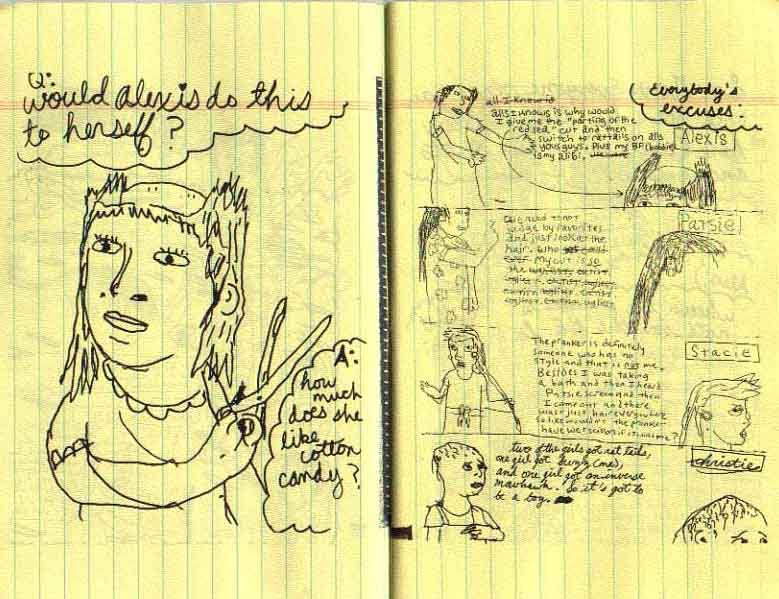 Q:
would alexis do this
to herself?
A:
how
much
does she
like
cotton
candy?
Everybody's
excuses:
Alexis
all I know is
alls I knows is why would
I give me the "parting of the
red sea" cut and then
switch to rattails on alls
yous guys. Plus my BF (baddie)
is my alibi.
Patsie
judge by favorites
and just look at the
hair. who
My cut is so
the
Stacie
The pranker is definitely
someone who has no
style and that is not me.
Besides I was taking
a bath and then I heard
Patsie scream and then
I came out and there
was just hair everywhere
so like wouldn't the pranker
have wet scissors if it was me?
Christie
two of the girls got rat tails,
one girl got (me),
and one girl got an inverse
mowhawk. So it's got to
be a boy.